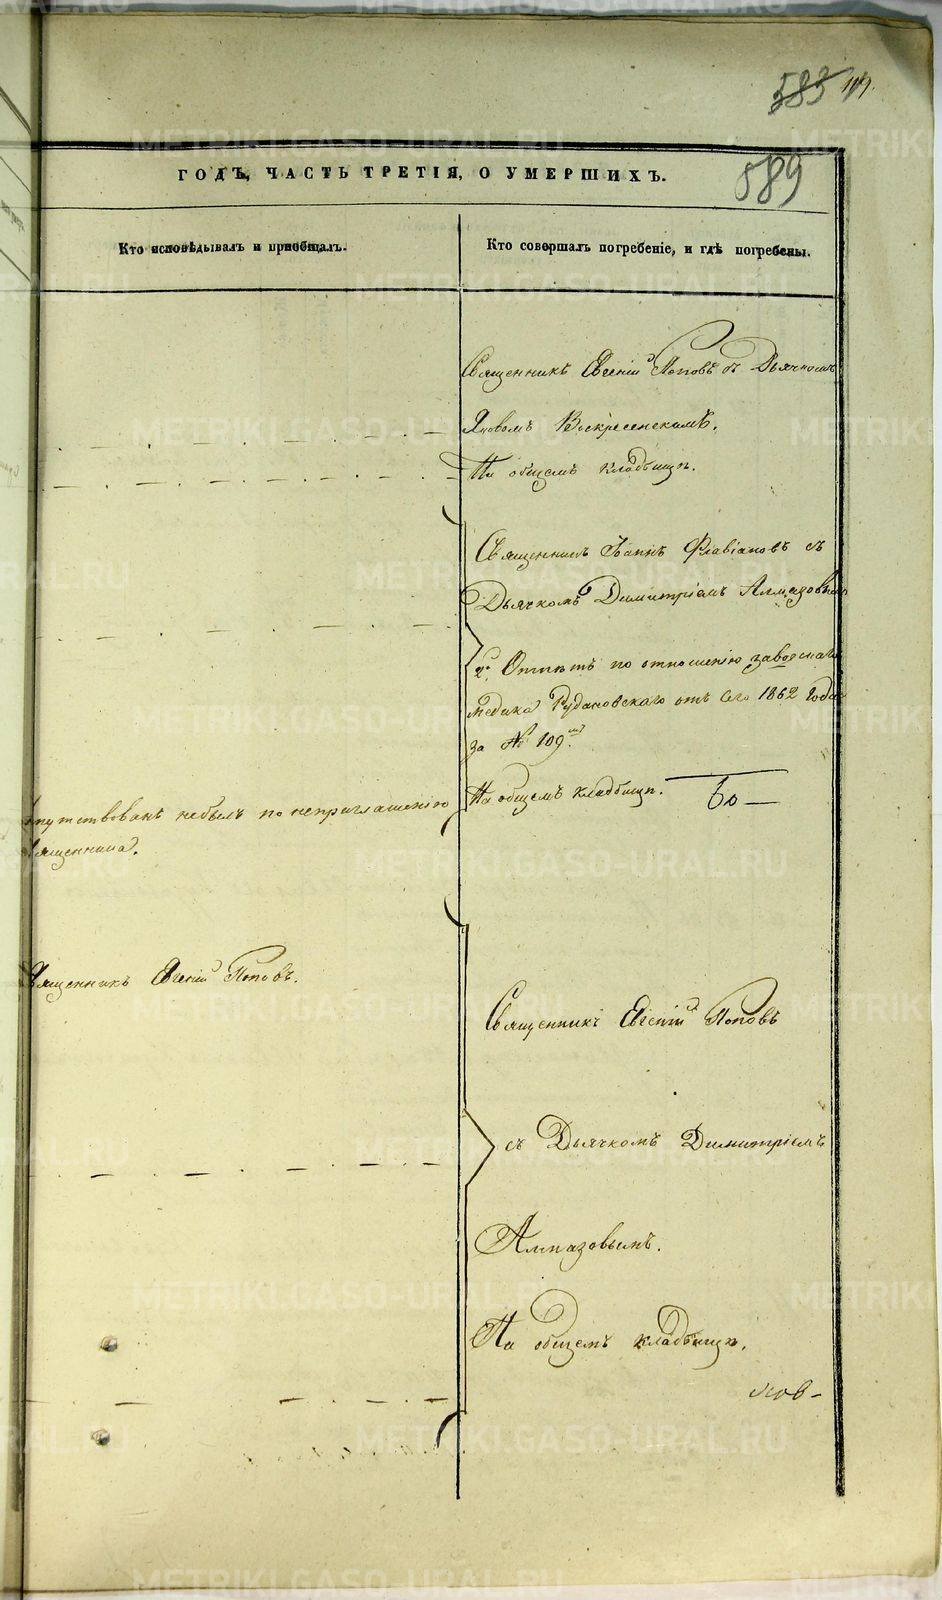 583
109.
589
ГОДЪ, ЧАСТЬ ТРЕТІЯ, О УМЕРШИХЪ.
Кто исповѣдывалъ и пріобщалъ.
Кто совершалъ погребеніе, и гдѣ погребены.
Священникъ Евгеній Поповъ съ Дьячкомъ
Яковомъ Воскресенскимъ.
На общемъ кладбищѣ.
Священникъ Іоаннъ Флавіановъ съ
Дьячкомъ Димитріемъ Алмазовымъ
2. Отпѣтъ по отношенію заводскаго
медика Рудановскаго отъ сего 1862 года
за № 109.
На общемъ кладбищѣ.
напутствованъ небылъ по неприглашенію
священника.
Священникъ Евгеній Поповъ.
Священникъ Евгеній Поповъ
съ Дьячкомъ Димитріемъ
Алмазовымъ.
На общемъ кладбищѣ.
METRIKI.GASO-URAL.RU